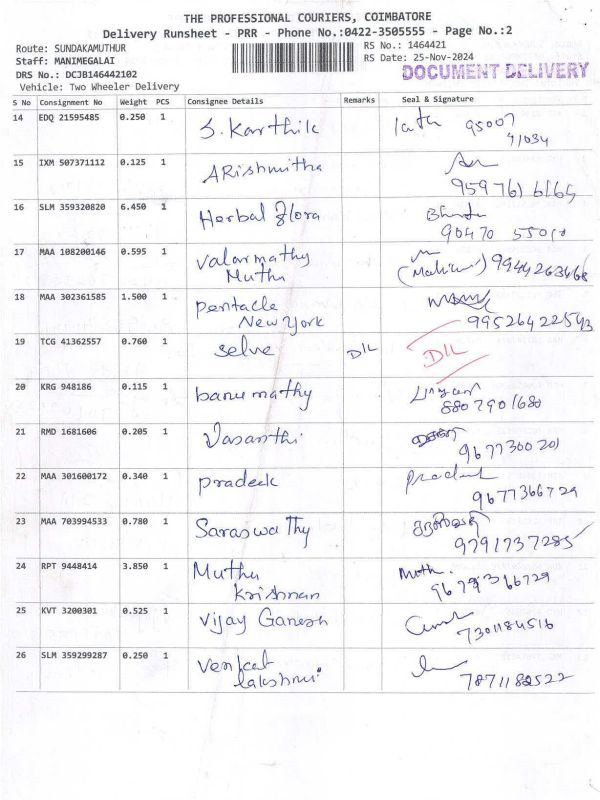 THE PROFESSIONAL COURIERS, COIMBATORE
Delivery Runsheet - PRR - Phone No.:0422-3505555 - Page No.:2
Route: SUNDAKAMUTHUR
RS No.: 1464421
Staff: MANIMEGALAI
RS Date: 25-Nov-2024
DRS No.: DCJB146442102
DOCUMENT DELIVERY
Vehicle: Two Wheeler Delivery
S No Consignment No Weight PCS Consignee Details Remarks Seal & Signature
14 EDQ 21595485 0.250 1 S. Karthik latha 95007
91034
15 IXM 507371112 0.125 1 ARishmitha
9597616165
16 SLM 359320820 6.450 1 Herbal flora
90470 55010
17 MAA 108200146 0.595 1 Valarmathy
Muthu 9944263468
18 MAA 302361585 1.500 1 pentacle
New York 99526422543
19 TCG 41362557 0.760 1 Selve D/L D/L
20 KRG 948186 0.115 1 banumathy
8807901680
21 RMD 1681606 0.205 1 Vasanthi
9677300201
22 MAA 301600172 0.340 1 pradeek
9677366729
23 MAA 703994533 0.780 1 Saraswathy
9791737285
24 RPT 9448414 3.850 1 Muthu Muth.
Krishnan
25 KVT 3200301 0.525 1 Vijay Ganesh
7301184516
26 SLM 359299287 0.250 1 Venkat
lakshmi 7871182522